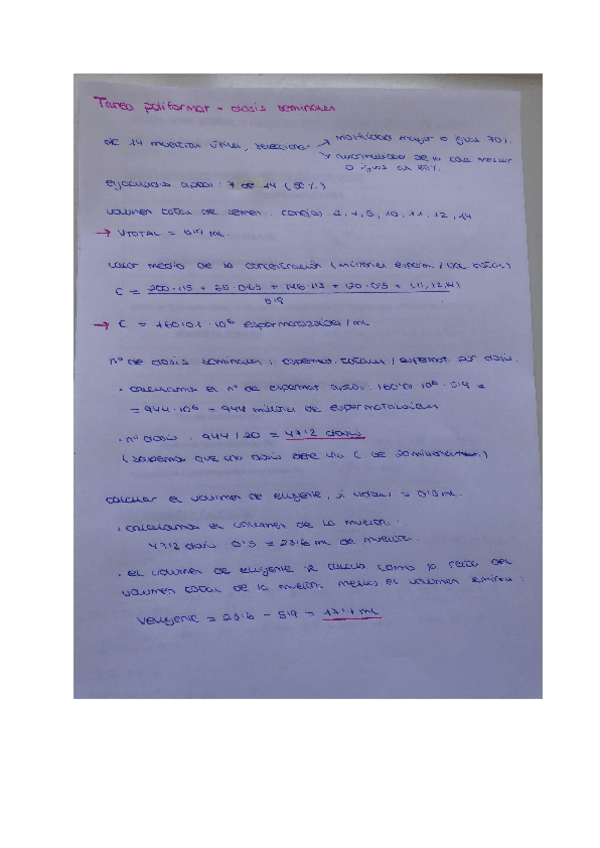 Tarea poliformat - dosis seminales
de 14 muestras útiles, seleccionar → motilidad mayor o igual 70%.
→ anormalidades de la cola menor
o igual al 20%.
eyaculados aptos: 7 de 14 (50%)
volumen total de semen: conejos 2, 7, 8, 10, 11, 12, 14
→ VTOTAL = 5'9 mL.
valor medio de la concentración (millones esperm. / vol. total)
C =
→ C = 160'01 · 10⁶ espermatozoides / mL
nº de dosis seminales: espermat. totales / espermat. por dosis.
· calculamos el nº de espermat. aptos: 160'01 · 10⁶ · 5'9 =
= 944 · 10⁶ = 944 millones de espermatozoides
· nº dosis: 944 / 20 = 47'2 dosis
(sabemos que una dosis debe una C de 20 millones)
calcular el volumen de diluyente, si vdosis = 0'5 mL.
· calculamos el volumen de la mezcla:
47'2 dosis · 0'5 = 23'6 mL de mezcla.
· el volumen de diluyente se calcula como la resta del
volumen total de la mezcla menos el volumen semen:
Vdiluyente = 23'6 - 5'9 = 17'7 mL